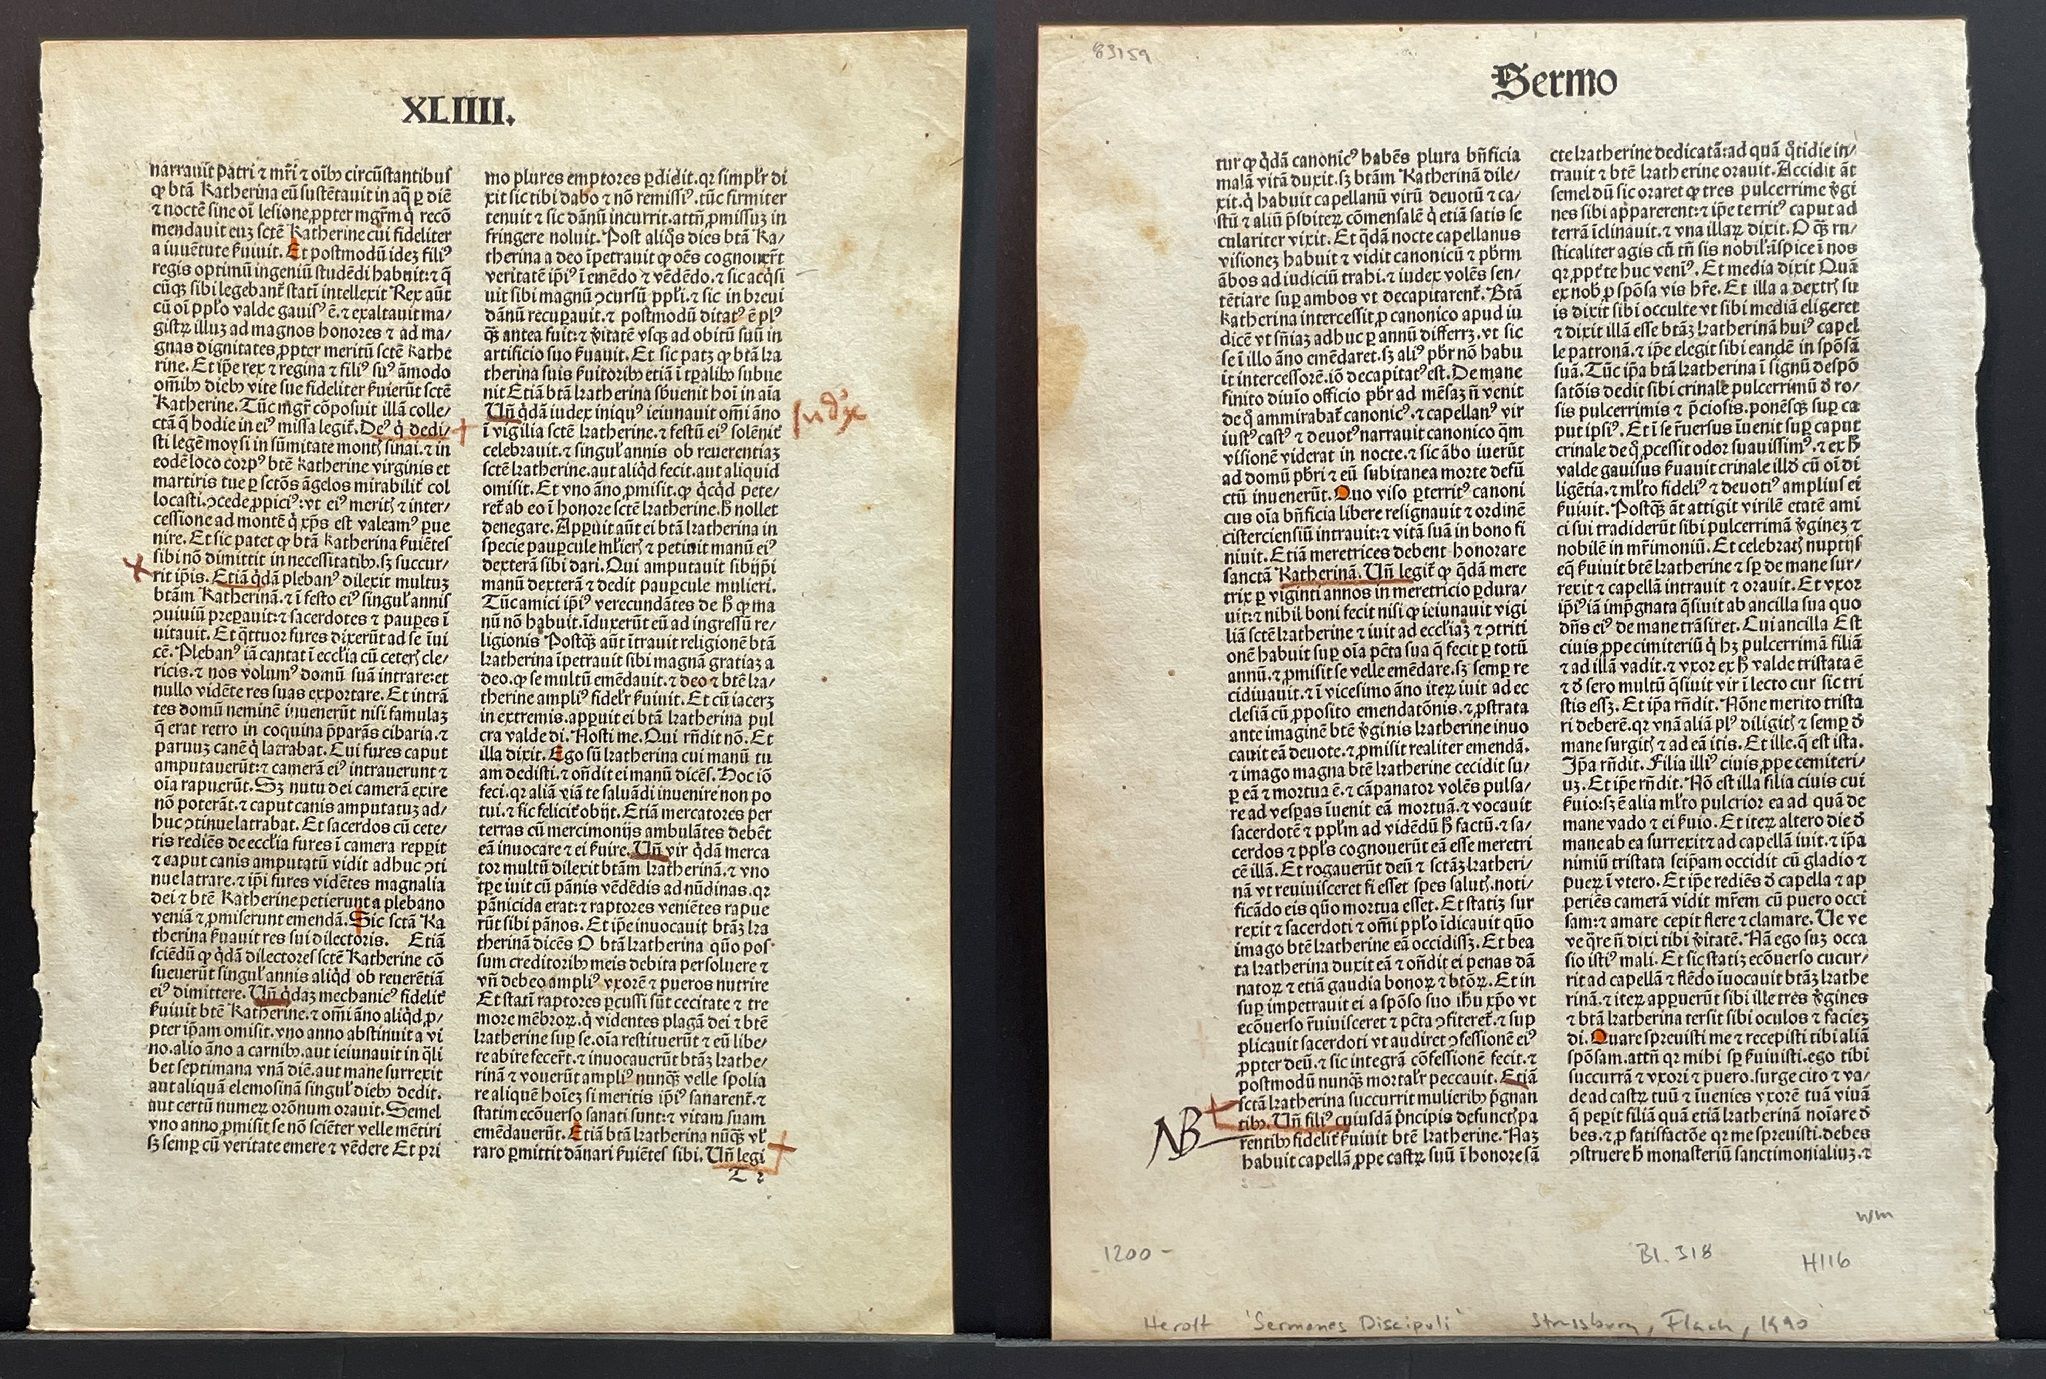 XLIIII.
narrauit patri ⁊ mr̄i ⁊ oīb⁹ circūstantibus
ꝙ btā Katherina eū sustētauit in aq̄ ꝑ diē
⁊ noctē sine oī lesione ꝓpter mgr̄m q̇ recō
mendauit euʒ sctē Katherine cui fideliter
a iuuētute ẜuiuit. Et postmodū ideʒ fili⁹
regis optimū ingeniū studēdi habuit: ⁊ q̄
cūqʒ sibi legebant̄ statī intellexit Rex aūt
cū oī ppl̄o valde gauis⁹ ē. ⁊ exaltauit ma/
gistꝝ illuʒ ad magnos honores ⁊ ad ma/
gnas dignitates ꝓpter meritū sctē Kathe
rine. Et ip̄e rex ⁊ regina ⁊ fili⁹ su⁹ āmodo
om̄ib⁹ dieb⁹ vite sue fideliter ẜuierūt sctē
Katherine. Tūc mgr̄ cōposuit illā colle/
ctā q̄ hodie in ei⁹ missa legit̄. De⁹ q̇ dedi/
sti legē moysi in sūmitate montꝭ sinai. ⁊ in
eodē loco corp⁹ btē Katherine virginis et
martiris tue ꝑ sctōs āgelos mirabilit̄ col
locasti. ꝯcede ꝓpici⁹: vt ei⁹ meritꝭ ⁊ inter/
cessione ad montē q̇ xp̄s est valeam⁹ ꝑue
nire. Et sic patet ꝙ btā Katherina ẜuiētes
sibi nō dimittit in necessitatib⁹. sʒ succur/
rit ip̄is. Etiā q̇dā pleban⁹ dilexit multuʒ
btām Katherinā. ⁊ ī festo ei⁹ singul̄ annis
ꝯuiuiū preparauit: ⁊ sacerdotes ⁊ pauꝑes ī
uitauit. Et q̄ttuor fures dixerūt ad se īui
cē. Pleban⁹ iā cantat ī eccl̄ia cū ceterꝭ cle/
ricis. ⁊ nos volum⁹ domū suā intrare: et
nullo vidēte res suas exportare. Et intrā
tes domū neminē inuenerūt nisi famulaʒ
q̄ erat retro in coquina p̄parās cibaria. ⁊
paruuʒ canē q̇ latrabat. Cui fures caput
amputauerūt: ⁊ camerā ei⁹ intrauerunt ⁊
oīa rapuerūt. Sʒ nutu dei camerā exire
nō poterāt. ⁊ caput canis amputatuʒ ad/
huc ꝯtinue latrabat. Et sacerdos cū cete/
ris rediēs de eccl̄ia fures ī camera reꝑꝑit
⁊ caput canis amputatū vidit adhuc ꝯti
nue latrare. ⁊ ip̄i fures vidētes magnalia
dei ⁊ btē Katherine petierunt a plebano
veniā ⁊ ꝓmiserunt emendā. Sic sctā Ka
therina ẜuauit res sui dilectoris. Etiā
sciēdū ꝙ q̇dā dilectores sctē Katherine cō
sueuerūt singul̄ annis aliq̇d ob reuerētiā
ei⁹ dimittere. Un̄ q̇daʒ mechanic⁹ fidelit̄
ẜuiuit btē Katherine. ⁊ om̄i āno aliq̇d ꝓ/
pter ip̄am omisit. vno anno abstinuit a vi
no. alio āno a carnib⁹. aut ieiunauit in q̄li
bet septimana vnā diē. aut mane surrexit
aut aliquā elemosinā singul̄ dieb⁹ dedit.
aut certū numeꝝ orōnum orauit. Semel
vno anno ꝓmisit se nō sciēter velle mētiri
sʒ semꝑ cū veritate emere ⁊ vēdere Et pri
mo plures emptores ꝑdidit. qr simpl̄r di
xit sic tibi dabo ⁊ nō remissi⁹. tūc firmiter
tenuit ⁊ sic dānū incurrit. attn̄ ꝓmissuʒ in
fringere noluit. Post aliq̇s dies btā Ka/
therina a deo īpetrauit ꝙ oēs cognouer̄t
veritatē ip̄i⁹ ī emēdo ⁊ vēdēdo. ⁊ sic acq̇si
uit sibi magnū ꝯcursū ppl̄i. ⁊ sic in breui
dānū recuꝑauit. ⁊ postmodū ditat⁹ ē pl⁹
q̄ʒ antea fuit: ⁊ v̄itatē vsqʒ ad obitū suū in
artificio suo ẜuauit. Et sic patʒ ꝙ btā ka
therina suis ẜuitorib⁹ etiā ī tꝑalib⁹ subue
nit Etiā btā katherina sb̄uenit hoī in aīa
Un̄ q̇dā iudex iniqu⁹ ieiunauit om̄i āno
ī vigilia sctē katherine. ⁊ festū ei⁹ solēnit̄
celebrauit. ⁊ singul̄ annis ob reuerentiaʒ
sctē katherine. aut aliq̇d fecit. aut aliquid
omisit. Et vno āno ꝓmisit. ꝙ q̇cq̇d pete/
ret̄ ab eo ī honore sctē katherine. ẖ nollet
denegare. Apꝑuit aūt ei btā katherina in
specie pauꝑcule ml̄ierꝭ ⁊ petiuit manū ei⁹
dexterā sibi dari. Qui amputauit sibijp̄i
manū dexterā ⁊ dedit pauꝑcule mulieri.
Tūc amici ip̄i⁹ verecundātes de ẖ ꝙ ma
nū nō habuit. īduxerūt eū ad ingressū re/
ligionis Postq̄ʒ aūt ītrauit religionē btā
katherina īpetrauit sibi magnā gratiaʒ a
deo. ꝙ se multū emēdauit. ⁊ deo ⁊ btē ka/
therine ampli⁹ fidel̄r ẜuiuit. Et cū iacerʒ
in extremis. apꝑuit ei btā katherina pul
cra valde di. Nosti me. Qui rn̄dit nō. Et
illa dixit. Ego sū katherina cui manū tu
am dedisti. ⁊ on̄dit ei manū dicēs. Hoc iō
feci. qr aliā viā te saluādi inuenire non po
tui. ⁊ sic felicit̄ obijt. Etiā mercatores per
terras cū mercimonijs ambulātes debēt
eā inuocare ⁊ ei ẜuire. Un̄ vir q̇dā merca
tor multū dilexit btām katherinā. ⁊ vno
tꝑe iuit cū pānis vēdēdis ad nūdinas. qr
pānicida erat: ⁊ raptores veniētes rapue
rūt sibi pānos. Et ip̄e inuocauit btāʒ ka
therinā dicēs O btā katherina quō pos
sum creditorib⁹ meis debita persoluere ⁊
vn̄ debeo ampli⁹ vxorē ⁊ pueros nutrire
Et statī raptores ꝑcussi sūt cecitate ⁊ tre
more mēbroꝝ. q̇ videntes plagā dei ⁊ btē
katherine suꝑ se. oīa restituerūt ⁊ eū libe/
re abire fecer̄t. ⁊ inuocauerūt btāʒ kathe/
rinā ⁊ vouerūt ampli⁹ nunq̄ʒ velle spolia
re aliquē hoīeʒ si meritis ip̄i⁹ sanarent̄. ⁊
statim ecōuerso sanati sunt: ⁊ vitam suam
emēdauerūt. Etiā btā katherina nūq̄ʒ vl̄
raro ꝑmittit dānari ẜuiētes sibi. Un̄ legi
Iudex
83159
Sermo
tur ꝙ q̇dā canonic⁹ habēs plura bn̄ficia
malā vitā duxit. sʒ btām Katherinā dile/
xit. q̇ habuit capellanū virū deuotū ⁊ ca/
stū ⁊ aliū p̄sbiteꝝ cōmensalē q̇ etiā satis se
culariter vixit. Et q̇dā nocte capellanus
visioneʒ habuit ⁊ vidit canonicū ⁊ pbrm
ābos ad iudiciū trahi. ⁊ iudex volēs sen/
tētiare suꝑ ambos vt decapitarent̄. Btā
katherina intercessit ꝓ canonico apud iu
dicē vt sn̄iaʒ adhuc ꝑ annū differrʒ. vt sic
se ī illo āno emēdaret. sʒ ali⁹ pbr nō habu
it intercessorē. iō decapitat⁹ est. De mane
finito diuīo officio pbr ad mēsaʒ n̄ venit
de q̇ ammirabat̄ canonic⁹. ⁊ capellan⁹ vir
iust⁹ cast⁹ ⁊ deuot⁹ narrauit canonico q̄m
visionē viderat in nocte. ⁊ sic ābo iuerūt
ad domū pbr̄i ⁊ eū subitanea morte defū
ctū inuenerūt. Quo viso ꝑterrit⁹ canoni
cus oīa bn̄ficia libere resignauit ⁊ ordinē
cisterciensiū intrauit: ⁊ vitā suā in bono fi
niuit. Etiā meretrices debent honorare
sanctā Katherinā. Un̄ legit̄ ꝙ q̇dā mere
trix ꝑ viginti annos in meretricio ꝑdura/
uit: ⁊ nihil boni fecit nisi ꝙ ieiunauit vigi
liā sctē katherine ⁊ iuit ad eccl̄iaʒ ⁊ ꝯtriti
onē habuit suꝑ oīa pc̄ta sua q̄ fecit ꝑ totū
annū. ⁊ ꝓmisit se velle emēdare. sʒ semꝑ re
cidiuauit. ⁊ ī vicesimo āno iteꝝ iuit ad ec
clesiā cū ꝓposito emendatōnis. ⁊ ꝓstrata
ante imaginē btē v̄ginis katherine inuo
cauit eā deuote. ⁊ ꝓmisit realiter emendā.
⁊ imago magna btē katherine cecidit su/
ꝑ eā ⁊ mortua ē. ⁊ cāpanator volēs pulsa/
re ad vesꝑas īuenit eā mortuā. ⁊ vocauit
sacerdotē ⁊ ppl̄m ad vidēdū ẖ factū. ⁊ sa/
cerdos ⁊ ppl̄s cognouerūt eā esse meretri
cē illā. Et rogauerūt deū ⁊ sctāʒ katheri/
nā vt reuiuisceret si esset spes salutꝭ. noti/
ficādo eis quō mortua esset. Et statiʒ sur
rexit ⁊ sacerdoti ⁊ om̄i ppl̄o īdicauit quō
imago btē katherine eā occidissʒ. Et bea
ta katherina duxit eā ⁊ on̄dit ei penas dā
natoꝝ ⁊ etiā gaudia bonoꝝ ⁊ btōꝝ. Et in
suꝑ impetrauit ei a spōso suo ih̄u xp̄o vt
ecōuerso r̄uiuisceret ⁊ pc̄ta ꝯfiteret̄. ⁊ sup
plicauit sacerdoti vt audiret ꝯfessionē ei⁹
ꝓpter deū. ⁊ sic integrā cōfessionē fecit. ⁊
postmodū nunq̄ʒ mortal̄r peccauit. Etiā
sctā katherina succurrit mulierib⁹ p̄gnan
tib⁹. Un̄ fili⁹ cuiusdā pͥncipis defunctꝭ pa
rentib⁹ fidelit̄ ẜuiuit btē katherine. Naʒ
habuit capellā ꝓpe castꝝ suū ī honore sā
cte katherine dedicatā: ad quā q̇tidie in/
trauit ⁊ btē katherine orauit. Accidit āt
semel dū sic oraret ꝙ tres pulcerrime v̄gi
nes sibi apparerent: ⁊ ip̄e territ⁹ caput ad
terrā īclinauit. ⁊ vna illaꝝ dixit. O q̄ʒ ru/
sticaliter agis cū tn̄ sis nobil̄. aspice ī nos
qr ꝓpt̄ te huc veni⁹. Et media dixit Quā
ex nob̄ ꝓ spōsa vis hr̄e. Et illa a dextrꝭ su
is dixit sibi occulte vt sibi mediā eligeret
⁊ dixit illā esse btāʒ katherinā hui⁹ capel
le patronā. ⁊ ip̄e elegit sibi eandē in spōsā
suā. Tūc ip̄a btā katherina ī signū despō
satōis dedit sibi crinale pulcerrimū ḋ ro/
sis pulcerrimis ⁊ p̄ciosis. ponēsqʒ suꝑ ca
put ipsi⁹. Et ī se r̄uersus īuenit suꝑ caput
crinale de q̇ ꝓcessit odor suauissim⁹. ⁊ ex ẖ
valde gauisus ẜuauit crinale illḋ cū oī di
ligētia. ⁊ ml̄to fideli⁹ ⁊ deuoti⁹ amplius ei
ẜuiuit. Postq̄ʒ āt attigit virilē etatē ami
ci sui tradiderūt sibi pulcerrimā v̄gineʒ ⁊
nobilē in mr̄imoniū. Et celebratꝭ nuptijs
eq̄ ẜuiuit btē katherine ⁊ sꝑ de mane sur/
rexit ⁊ capellā intrauit ⁊ orauit. Et vxor
ip̄i⁹ iā imp̄gnata q̄siuit ab ancilla sua quo
dn̄s ei⁹ de mane trāsiret. Cui ancilla Est
ciuis ꝓpe cimiteriū q̇ hʒ pulcerrimā filiā
⁊ ad illā vadit. ⁊ vxor ex ẖ valde tristata ē
⁊ ḋ sero multū q̄siuit vir ī lecto cur sic tri
stis essʒ. Et ip̄a rn̄dit. Nōne merito trista
ri deberē. qr vnā aliā pl⁹ diligitꝭ ⁊ semꝑ ḋ
mane surgitꝭ ⁊ ad eā itis. Et ille. q̄ est ista.
Ip̄a rn̄dit. Filia illi⁹ ciuis ꝓpe cemiteri/
uʒ. Et ip̄e rn̄dit. Nō est illa filia ciuis cui
ẜuio: sʒ ē alia ml̄to pulcrior ea ad quā de
mane vado ⁊ ei ẜuio. Et iteꝝ altero die ḋ
mane ab ea surrexit ⁊ ad capellā iuit. ⁊ ip̄a
nimiū tristata seipam occidit cū gladio ⁊
pueꝝ ī vtero. Et ip̄e rediēs ḋ capella ⁊ ap
periēs camerā vidit mr̄em cū puero occi
sam: ⁊ amare cepit flere ⁊ clamare. Ue ve
ve q̄re n̄ dixi tibi v̄itatē. Nā ego suʒ occa
sio isti⁹ mali. Et sic statiʒ ecōuerso cucur/
rit ad capellā ⁊ flēdo īuocauit btāʒ kathe
rinā. ⁊ iteꝝ apꝑuerūt sibi ille tres v̄gines
⁊ btā katherina tersit sibi oculos ⁊ facieʒ
di. Quare spreuisti me ⁊ recepisti tibi aliā
spōsam. attn̄ qr mihi sꝑ ẜuiuisti. ego tibi
succurrā ⁊ vxori ⁊ puero. surge cito ⁊ va/
de ad castꝝ tuū ⁊ īuenies vxorē tuā viuā
q̄ peꝑit filiā quā etiā katherinā noīare ḋ
bes. ⁊ ꝓ satisfactōe qr me spreuisti. debes
ꝯstruere ẖ monasteriū sanctimonialiuʒ. ⁊
NB
wm
1200 -
Bl. 318
H116
Herolt 'Sermones Discipuli' Strassburg, Flach, 1490